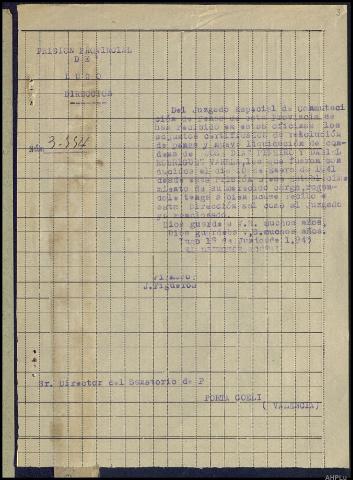 PRISION PROVINCIAL
DE
LUGO
DIRECCION
Núm 3.554
Del Juzgado Especial de Conmutación de Penas de esta Provincia se
han recibido en estas oficinas los
adjuntos certificados de resolución
de penas y nueva liquidación de condena de JOSE
RODRIGUEZ VARELA, los que fueron conducidos el día 10 de enero de 1941
desde esta Prisión a ese Establecimiento de su merecido cargo, rogandole tenga a bien acusar recibo a
esta Dirección así como al Juzgado
ya mencionado.
Dios guarde a V.S. muchos años.
Dios guarde a V.S. muchos años.
Lugo 18 de Junio de 1.943
Firmado:
J.Figueroa
Sr. Director del Sanatorio de P
PORTA COELI
( VALENCIA )
AHPLu